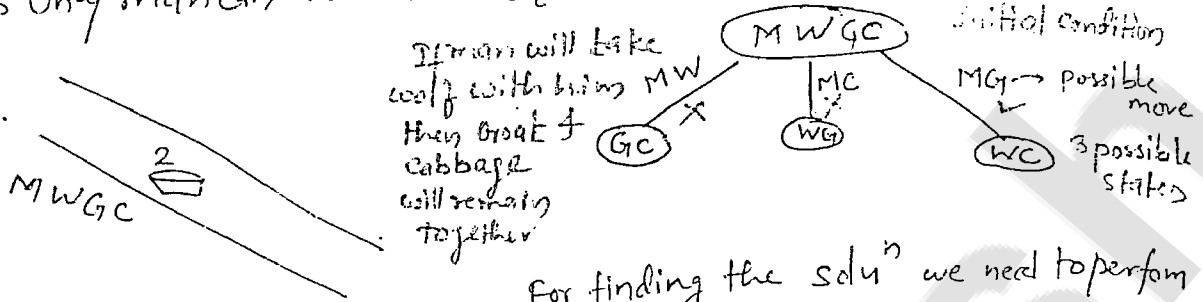 MWGC
2
If man will take
woolf with him
then Groat &
cabbage
will remain
together
MWGC
Initial condition
MW
MC
MG → possible
move
GC
WG
WC
3 possible
states
For finding the soluⁿ we need to perfom